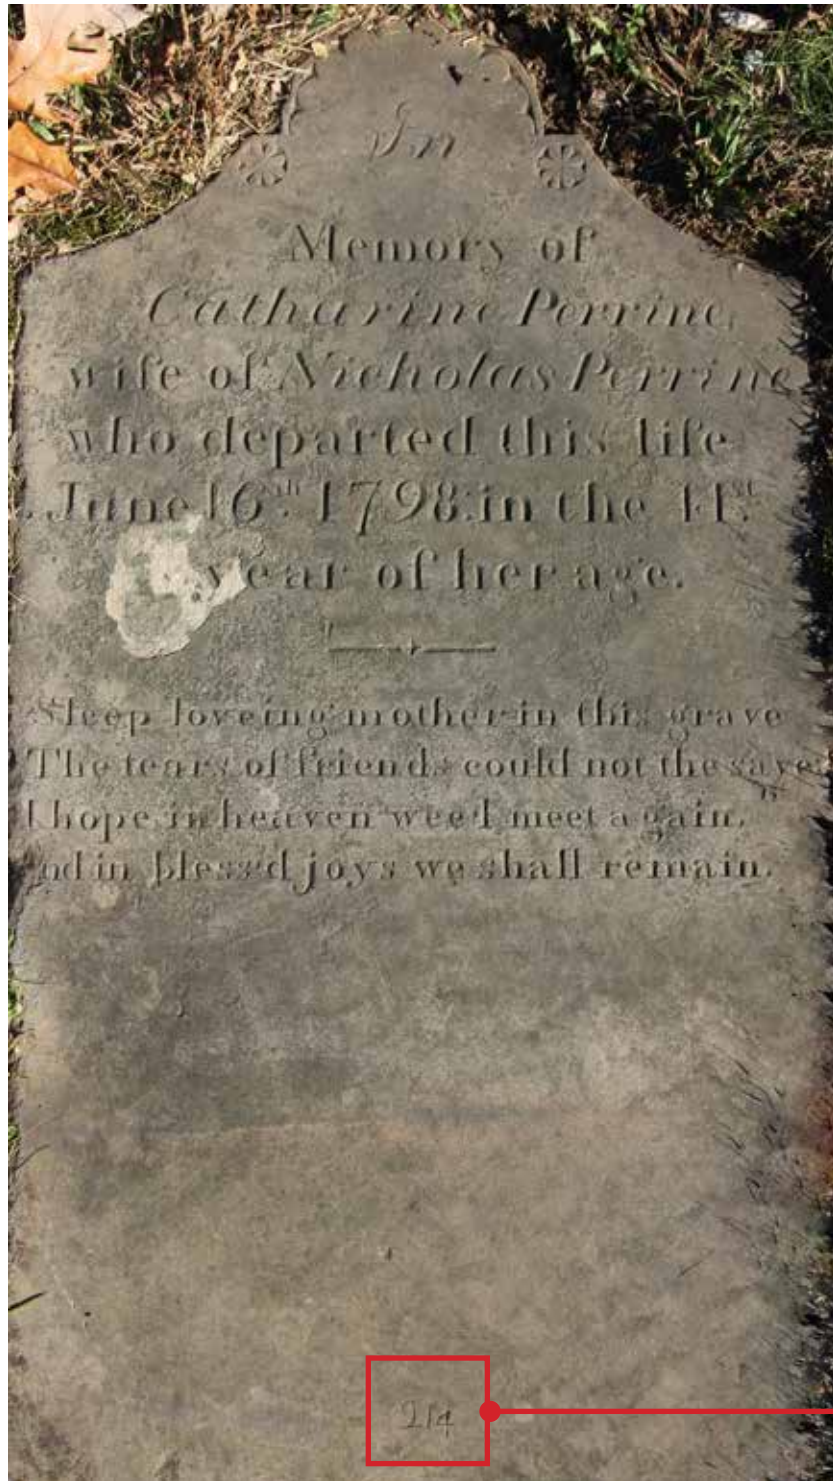 In
Memory of
Catharine Perrine,
wife of Nicholas Perrine
who departed this life
June 16th. 1798: in the 41st.
year of her age.
Sleep loveing mother in this grave
The tears of friends could not the save
I hope in heaven wee'l meet again,
nd in blessed joys we shall remain.
214